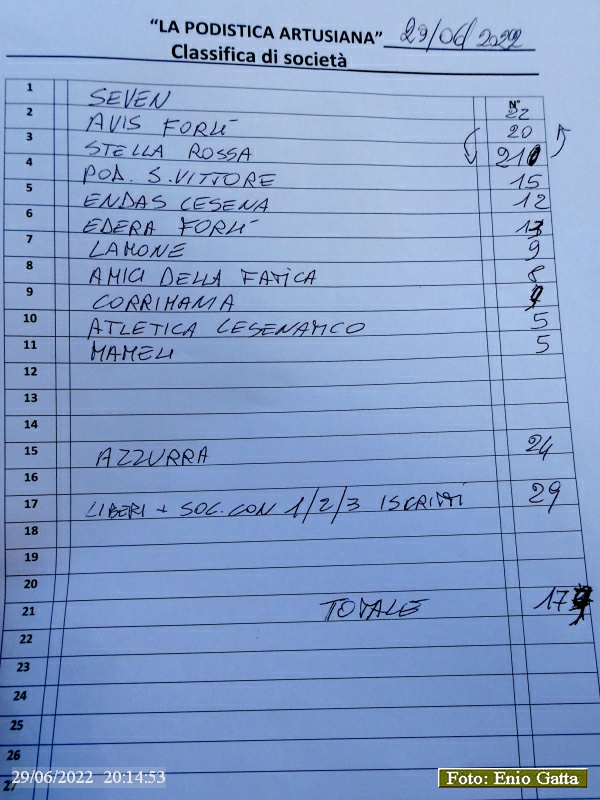 "LA PODISTICA ARTUSIANA" 29/06/2022
Classifica di società
N°
1 SEVEN 22
2 AVIS FORLÌ 20
3 STELLA ROSSA 21
4 POD. S. VITTORE 15
5 ENDAS CESENA 12
6 EDERA FORLÌ
7 LAMONE 9
8 AMICI DELLA FATICA 8
9 CORRIMANIA
10 ATLETICA CESENATICO 5
11 MAMELI 5
12
13
14
15 AZZURRA 24
16
17 LIBERI + SOC. CON 1/2/3 ISCRITTI 29
18
19
20
21 TOTALE
22
23
24
25
26
27
29/06/2022 20:14:53
Foto: Enio Gatta